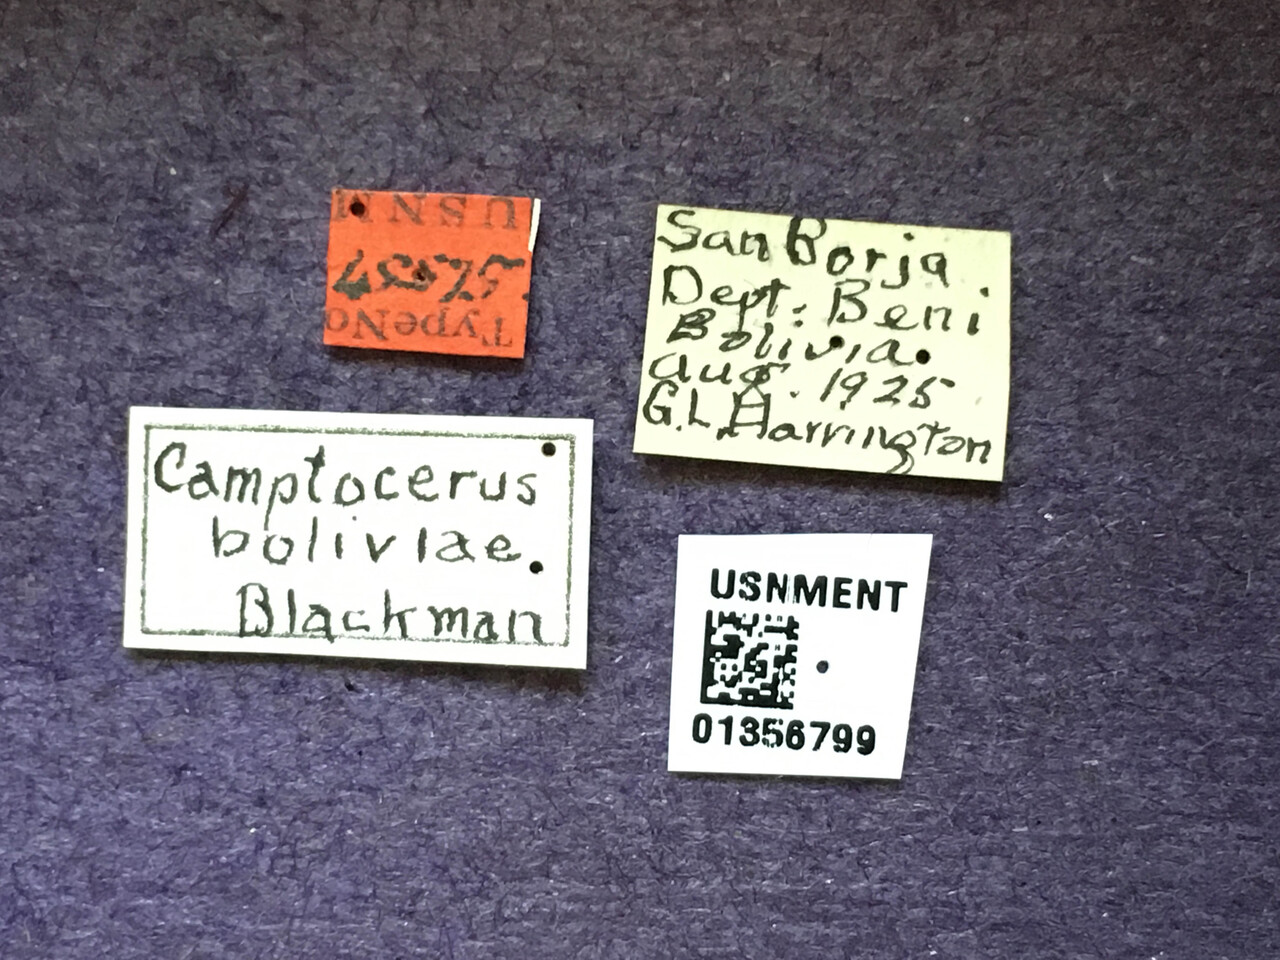 TypeNo
USNM
San Borja
Dept. Beni
Bolivia.
Aug. 1925
G.L. Harrington
Camptocerus
boliviae.
Blackman
USNMENT
01356799